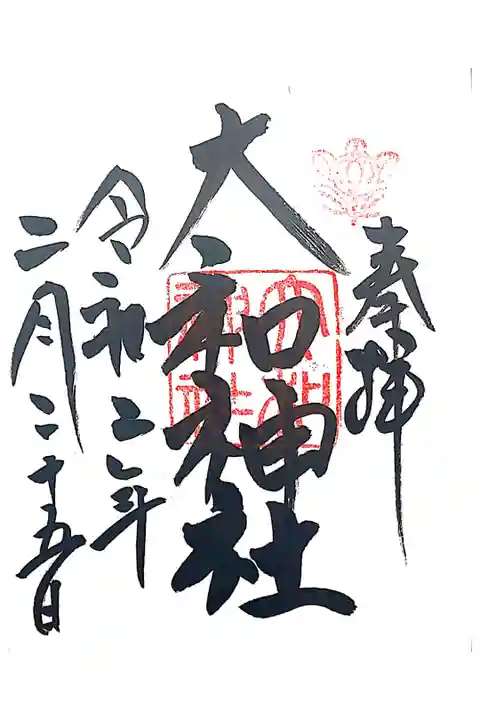 奉拝
大和神社
大和神社
令和二年
二月二十五日